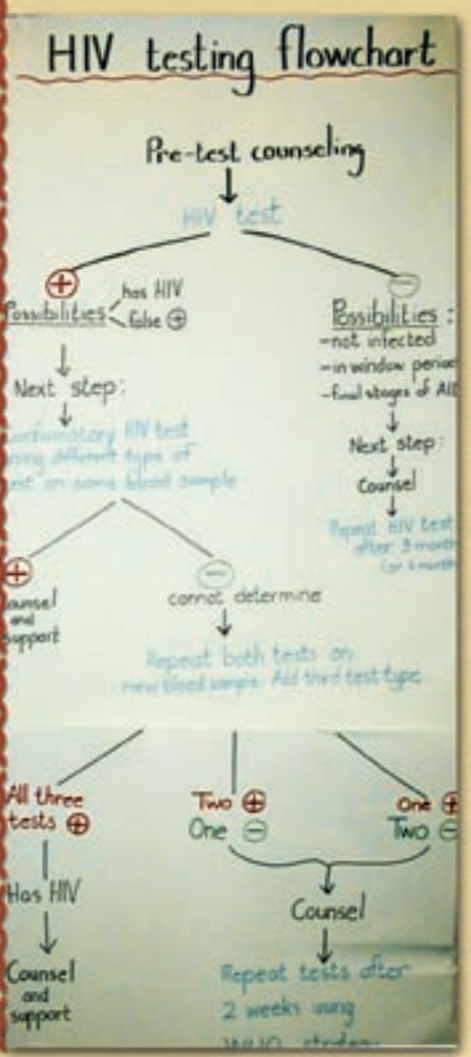 HIV testing flowchart
Pre-test counseling
HIV test
⊕
Possibilities
has HIV
false ⊕
Next step:
Confirmatory HIV test
using different type of
test on same blood sample
⊕
Counsel
and
support
⊖
cannot determine
Repeat both tests on
new blood sample. Add third test type
⊖
Possibilities :
-not infected
-in window period
-final stages of AID
Next step:
Counsel
Repeat HIV test
after 3 month
(or 6 month
All three
tests ⊕
Has HIV
Counsel
and
support
Two ⊕
One ⊖
One ⊕
Two ⊖
Counsel
Repeat tests after
2 weeks using
WHO strategy